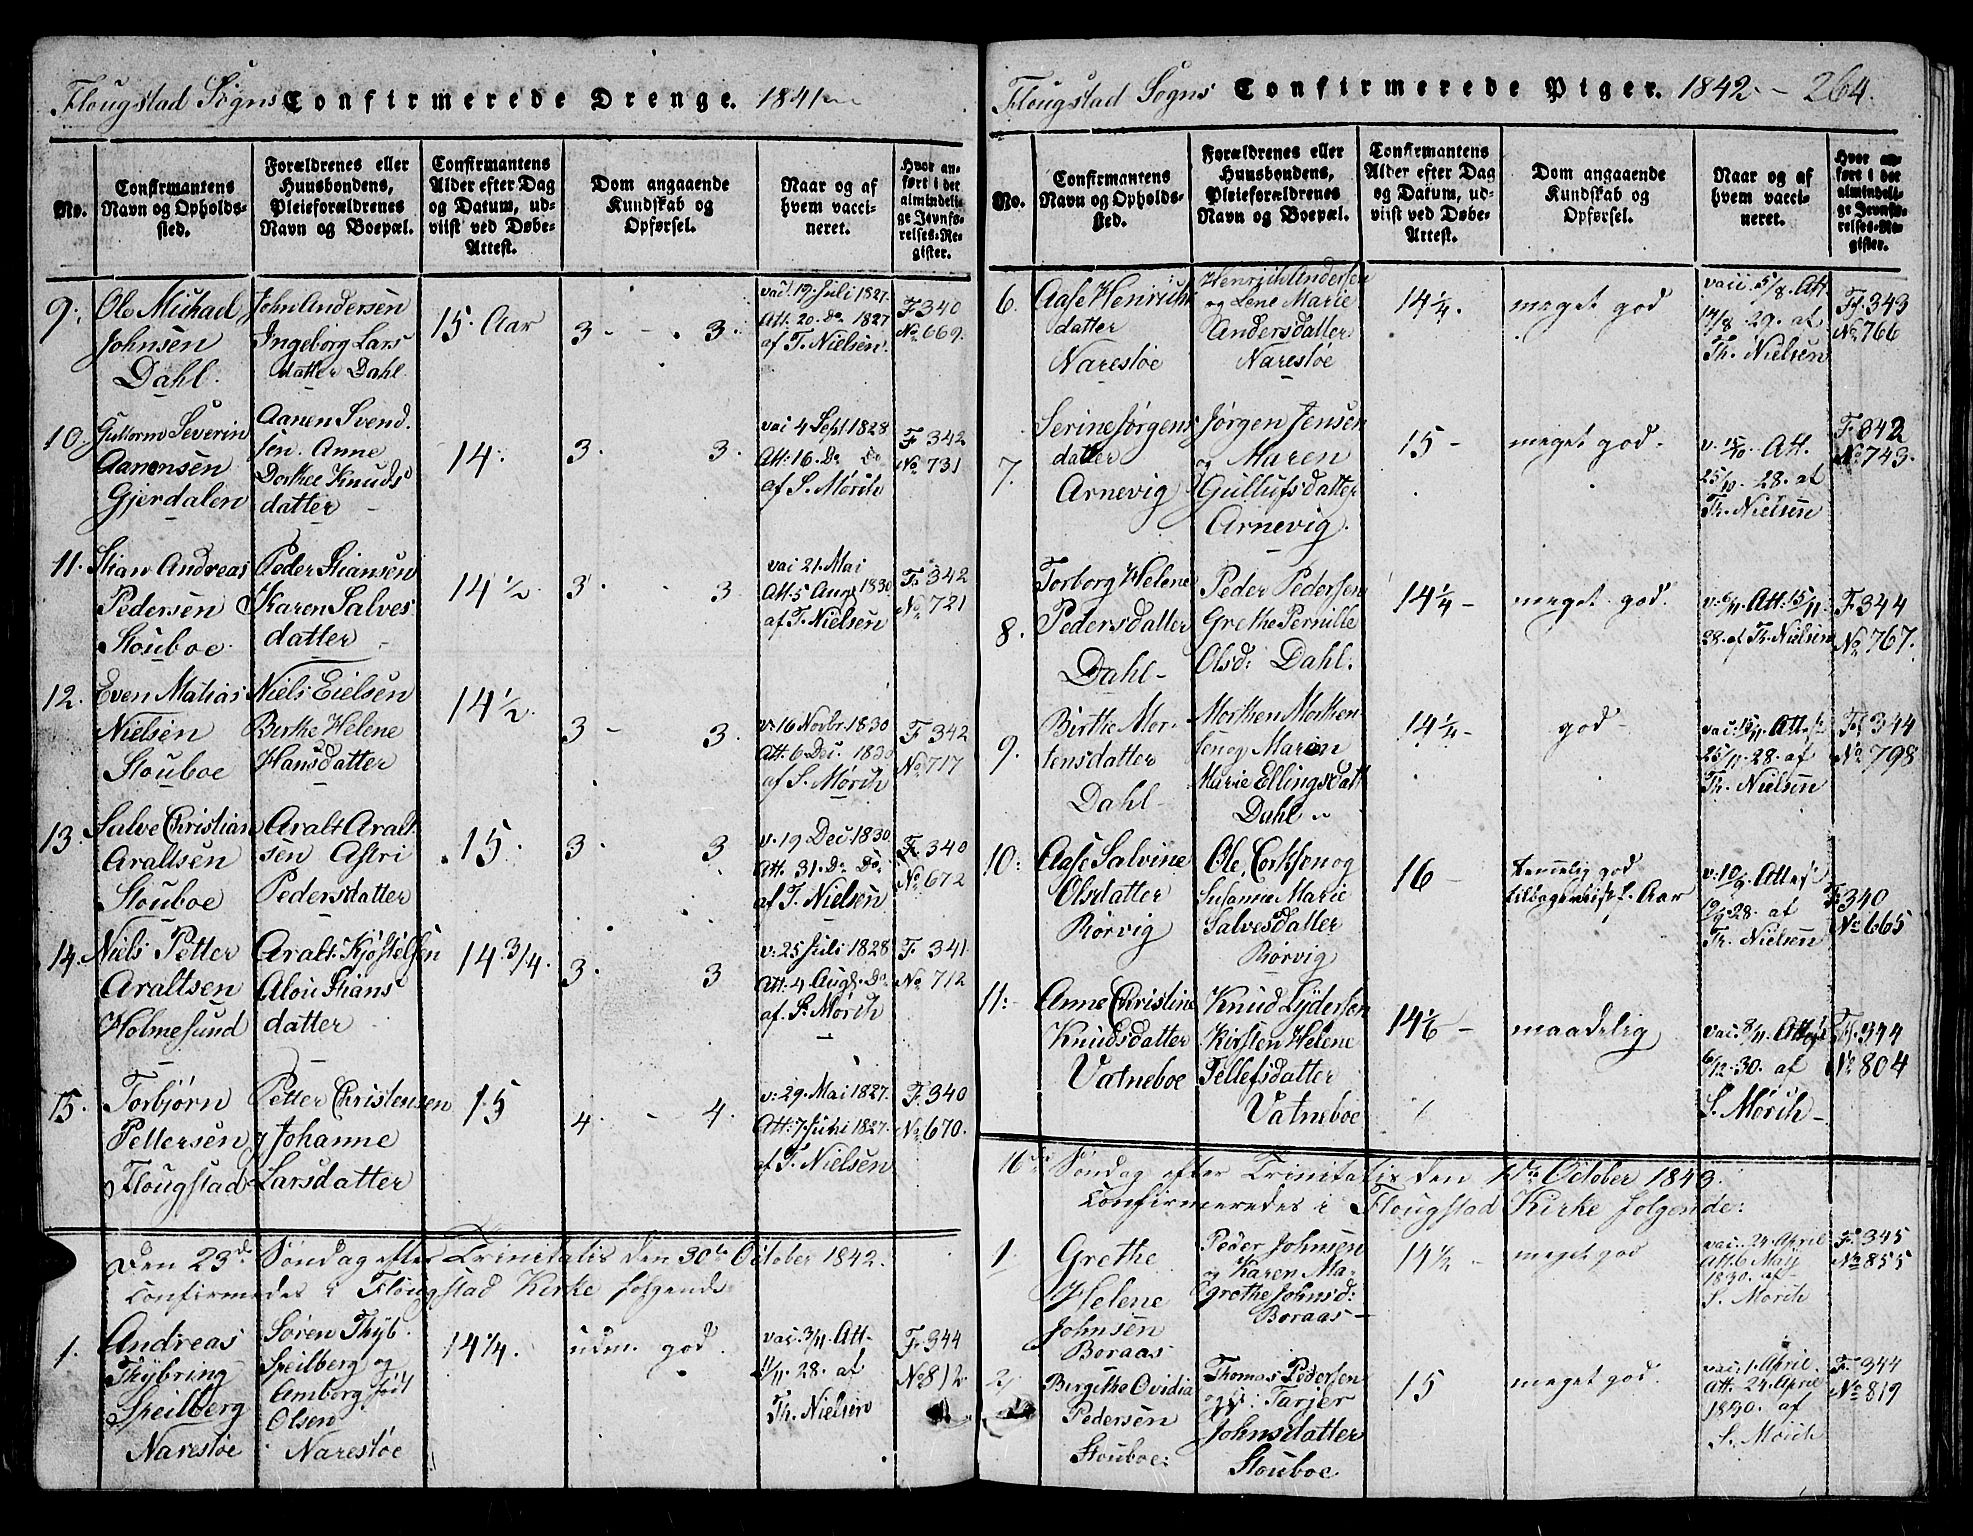 Flougstad Sogns Confirmerede Drenge. 1841
No.
Confirmantens
Navn og Opholds-
sted.
Forældrenes eller
Huusbondens,
Pleieforældrenes
Navn og Boepæl.
Confirmantens
Alder efter Dag
og Datum, ud-
viist ved Døbe-
Attest.
Dom angaaende
Kundskab og
Opførsel.
Naar og af
hvem vacci-
neret.
Hvor an-
ført i det
almindeli-
ge Jevnfø-
relses-Re-
gister.
9.
Ole Michael
Johnsen
Dahl.
John Andersen
Ingeborg Lars
datter Dahl
15. Aar
3. - . 3.
vac. 19. Juli 1827.
Att. 20. Do. 1827
af T. Nielsen.
F 340
No 669.
10.
Guttorm Severin
Aanensen
Gjerdalen
Aanen Svend.
sen. Anne
Dorthee Knuds
datter -
14.
3. 3.
vac 4 Sept 1828
Att: 16. Do Do
af S. Mørch
F 342
No 731
11.
Stian Andreas
Pedersen
Stouboe
Peder Stiansen
Karen Salves
datter -
14 1/2
3. - 3
vac 21. Mai
Att. 5 Aug 1830
af T. Nielsen
F. 342
No 721
12.
Even Matias
Nielsen
Stouboe
Niels Eielsen
Birthe Helene
Hansdatter
14 1/2.
3 - 3.
v. 16 Novbr. 1830
Att. 6. Dec. 1830
af S. Mørch
F 342
No 717
13.
Salve Christian
Araltsen
Stouboe
Aralt Aralt
sen Astri
Pedersdatter
15.
3. 3
v. 19 Dec 1830.
Att. 31. Do Do
af T. Nielsen
F. 340
No 672
14.
Niels Petter
Araltsen
Holmesund
Aralt Kjøstelsen
Alou Stians
datter -
14. 3/4.
3. 3
v. 25 Juli 1828
Att. 4 Aug. Do
af. S. Mørch
F. 341.
No 712
15.
Torbjørn
Pettersen
Flougstad
Petter Christensen
og Johanne
Larsdatter
15
4. - 4.
v. 29. Mai 1827.
Att: 7. Juni 1827.
af T. Nielsen
F. 340
No 670.
Den 23d. Søndag efter Trinitatis den 30te October 1842.
Confirmedes i Flougstad Kirke følgende:
1.
Andreas
Thybring
Speilberg
Narestøe
Søren Thyb.
Speilberg og
Amborg
Olsen
Narestøe
14 1/4.
udm. god.
vac. 3/11. Att-
11/11. 28. af
Th. Nielsen
F. 344
No 812
Flougstad Sogns Confirmerede Piger. 1842. - 264.
No.
Confirmantens
Navn og Opholds-
sted.
Forældrenes eller
Huusbondens,
Pleieforældrenes
Navn og Boepæl.
Confirmantens
Alder efter Dag
og Datum, ud-
viist ved Døbe-
Attest.
Dom angaaende
Kundskab og
Opførsel.
Naar og af
hvem vacci-
neret.
Hvor an-
ført i det
almindeli-
ge Jevnfø-
relses-Re-
gister.
6.
Aase Henrichs
datter
Narestøe
Henrich Andersen
og Lene Marie
Andersdatter
Narestøe
14 1/4.
meget god
vacc 5/8. Att.
14/8. 29. af
Th. Nielsen
F. 343
No 766
7.
Serine Jørgens
datter
Arnevig
Jørgen Jensen
og Maren
Gullufsdatter
Arnevig.
15 -
meget god.
v. 15/10. Att.
25/10. 28. af
Th. Nielsen
F. 842
No 743.
8.
Torborg Helene
Pedersdatter
Dahl-
Peder Pedersen
Grethe Pernille
Olsd: Dahl.
14 1/4 -
meget god.
v. 6/11. Att: 15/11.
28. af Th. Nielsen
F. 344
No 767.
9.
Birthe Mor-
tensdatter
Dahl-
Morthen Morthen-
sen og Maren
Marie Ellingsdatt
Dahl
14 1/4 -
god -
vac. 15/11. Attest
25/11. 28. af
Th. Nielsen
F. 344
No 798
10:
Aase Salvine
Olsdatter
Rørvig
Ole Terksen og
Susanne Marie
Salvesdatter
Rørvig
16 -
temmelig god
tilbageviist 1. Aar
v. 10/9. Attest
28. af
Th. Nielsen
F. 340
No 665
11:-
Anne Christine
Knudsdatter
Vatneboe
Knud Lydersen
Kirsten Helene
Tellefsdatter
Vatneboe
14 1/6 -
maadelig
vac. 8/11. Attest
6/12. 30. af
S. Mørch -
F. 344
No 804
16de Søndag efter Trinitatis den 1ste October 1843.
Confirmeredes i Flougstad Kirke følgende:
1
Grethe
Helene
Johnsen
Boraas
Peder Johnsen
og Karen Ma-
grethe Johnsd:
Boraas -
14 1/2 -
meget god
vac. 24. April
Att. 6 Maj
1830. af
S. Mørch
F. 345
No 855
2.
Birgithe Ovidia
Pedersen
Stouboe:
Thomas Pedersen
og : Tarjer
Johnsdatter
Stouboe
15
meget god.
vac. 1. April
Att. 24. April
1830. af
S. Mørch
F. 344
No 819